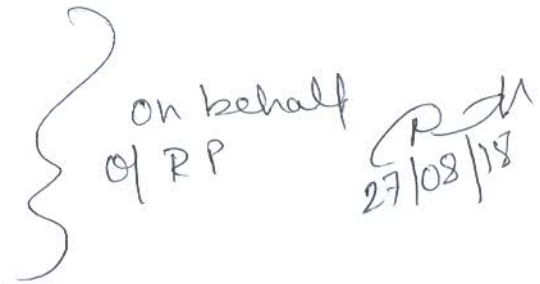 on behalf
of RP
27/08/18